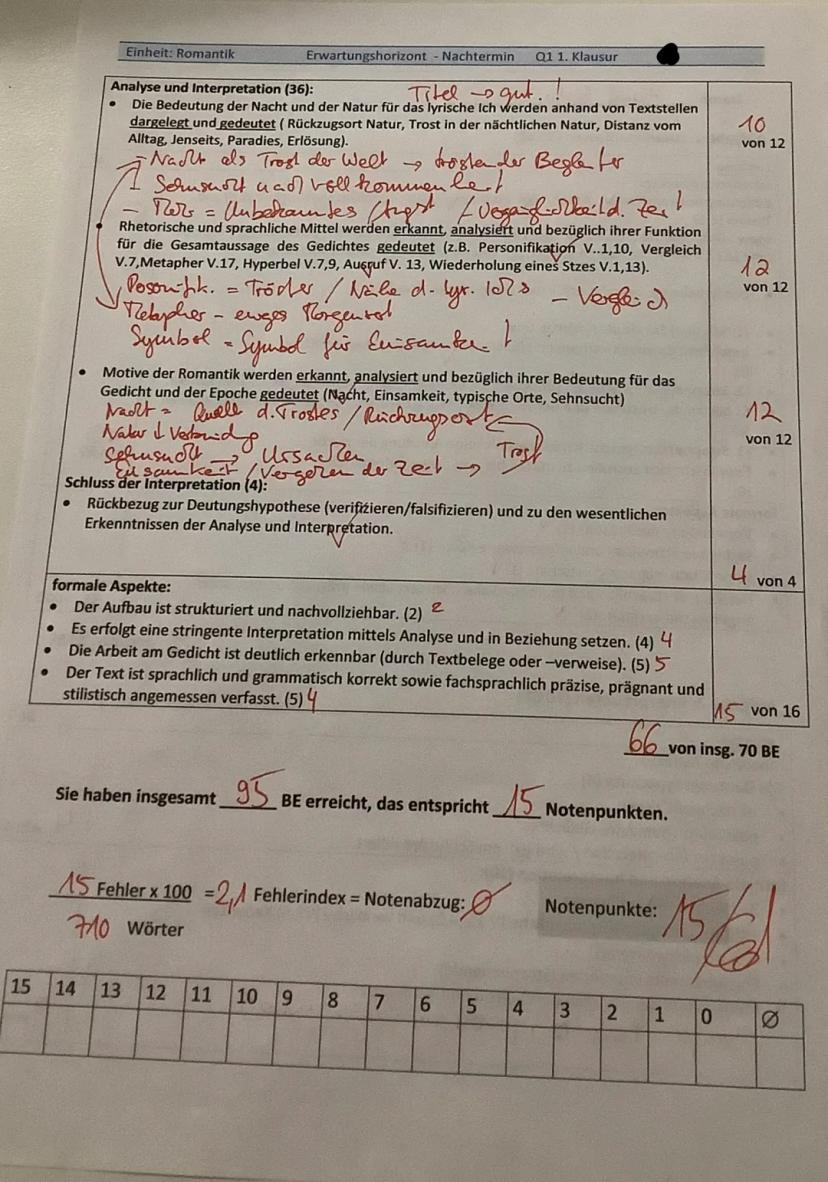 Einheit: Romantik Erwartungshorizont - Nachtermin Q1 1. Klausur
Analyse und Interpretation (36): Titel → gut. !
• Die Bedeutung der Nacht und der Natur für das lyrische Ich werden anhand von Textstellen
dargelegt und gedeutet ( Rückzugsort Natur, Trost in der nächtlichen Natur, Distanz vom
Alltag, Jenseits, Paradies, Erlösung).
10
von 12
- Nacht als Trost der Welt → tröstender Begleiter
Sehnsucht nach Vollkommenheit
- = Unbekanntes / Angst / Vergänglichkeit d. Zeit
• Rhetorische und sprachliche Mittel werden erkannt, analysiert und bezüglich ihrer Funktion
für die Gesamtaussage des Gedichtes gedeutet (z.B. Personifikation V..1,10, Vergleich
V.7,Metapher V.17, Hyperbel V.7,9, Ausruf V. 13, Wiederholung eines Stzes V.1,13).
12
von 12
Personifik. = Tröster / Nähe d. lyr. Ichs - Vergleich
Metapher - ewges Morgenrot
Symbol = Symbol für Einsamk. !
• Motive der Romantik werden erkannt, analysiert und bezüglich ihrer Bedeutung für das
Gedicht und der Epoche gedeutet (Nacht, Einsamkeit, typische Orte, Sehnsucht)
12
von 12
Nacht = Quell d. Trostes / Rückzugsort
Natur Verbindg
Sehnsucht → Ursachen
Einsamkeit / Vergehen der Zeit → Trost
Schluss der Interpretation (4):
• Rückbezug zur Deutungshypothese (verifizieren/falsifizieren) und zu den wesentlichen
Erkenntnissen der Analyse und Interpretation.
4 von 4
formale Aspekte:
• Der Aufbau ist strukturiert und nachvollziehbar. (2) 2
• Es erfolgt eine stringente Interpretation mittels Analyse und in Beziehung setzen. (4) 4
• Die Arbeit am Gedicht ist deutlich erkennbar (durch Textbelege oder –verweise). (5) 5
• Der Text ist sprachlich und grammatisch korrekt sowie fachsprachlich präzise, prägnant und
stilistisch angemessen verfasst. (5) 4
15 von 16
66 von insg. 70 BE
Sie haben insgesamt 95 BE erreicht, das entspricht 15 Notenpunkten.
15 Fehler x 100 = 2,1 Fehlerindex = Notenabzug: Ø Notenpunkte: 15
710 Wörter
15 14 13 12 11 10 9 8 7 6 5 4 3 2 1 0 Ø